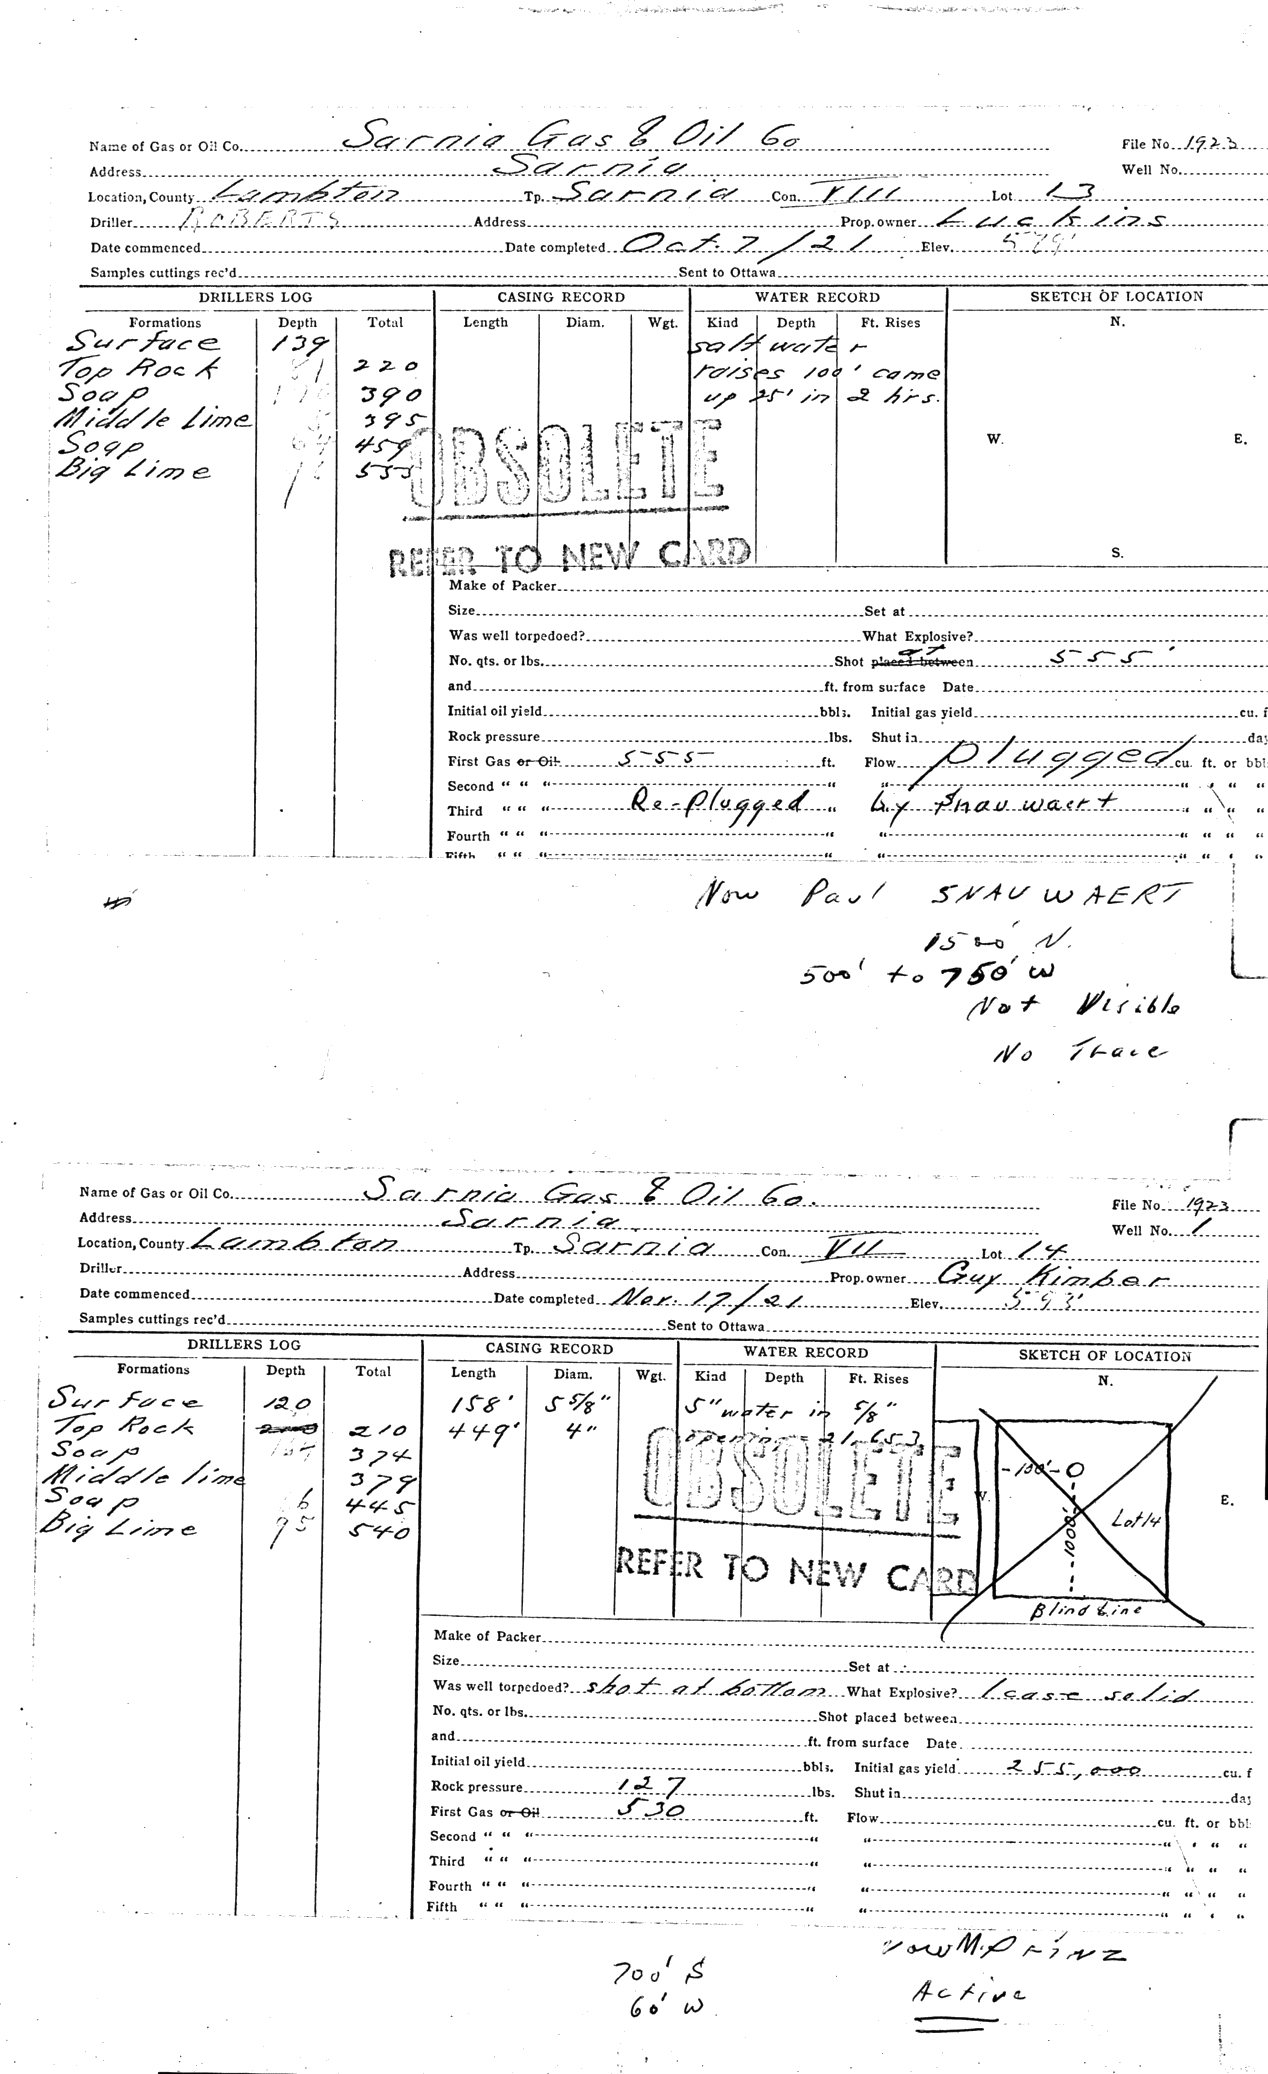 Name of Gas or Oil Co. Sarnia Gas & Oil Co File No. 1923
Address Sarnia Well No.
Location, County Lambton Tp. Sarnia Con. VIII Lot 13
Driller ROBERTS Address Prop. owner Luckins
Date commenced Date completed Oct. 7/21 Elev. 579'
Samples cuttings rec'd Sent to Ottawa
DRILLERS LOG CASING RECORD WATER RECORD SKETCH OF LOCATION
Formations Depth Total Length Diam. Wgt. Kind Depth Ft. Rises N.
Surface 139 salt water
Top Rock 81 220 raises 100' came
Soap 390 up 25' in 2 hrs.
Middle Lime 5 395
Soap 64 459 W. E.
Big Lime
OBSOLETE
REFER TO NEW CARD S.
Make of Packer
Size Set at
Was well torpedoed? What Explosive?
No. qts. or lbs. Shot placed between at 555'
and ft. from surface Date
Initial oil yield bbls. Initial gas yield cu. f
Rock pressure lbs. Shut in day
First Gas or Oil 555 ft. Flow plugged cu. ft. or bbl
Second " " " " " " " "
Third " " " Re-plugged " by Snauwaert " " " "
Fourth " " " " " " " " "
Fifth " " " " " " " " "
Now Paul SNAUWAERT
1500' N.
500' to 750' W
Not Visible
No Trace
Name of Gas or Oil Co. Sarnia Gas & Oil Co. File No. 1923
Address Sarnia Well No. 1
Location, County Lambton Tp. Sarnia Con. VII Lot 14
Driller Address Prop. owner Guy Kimber
Date commenced Date completed Nov. 17/21 Elev. 593'
Samples cuttings rec'd Sent to Ottawa
DRILLERS LOG CASING RECORD WATER RECORD SKETCH OF LOCATION
Formations Depth Total Length Diam. Wgt. Kind Depth Ft. Rises N.
Surface 120 158' 5 5/8" 5" water in 5/8"
Top Rock 210 449' 4"
Soap 374
Middle lime 379
Soap 445
Big Lime 95 540
OBSOLETE
REFER TO NEW CARD
W. E.
1000'
Lot 14
Blind Line
Make of Packer
Size Set at
Was well torpedoed? shot at bottom What Explosive? 1 case solid
No. qts. or lbs. Shot placed between
and ft. from surface Date
Initial oil yield bbls. Initial gas yield 255,000 cu. f
Rock pressure 127 lbs. Shut in day
First Gas or Oil 530 ft. Flow cu. ft. or bbl
Second " " " " " " " "
Third " " " " " " " "
Fourth " " " " " " " "
Fifth " " " " " " " "
700' S
60' W
Now M. PRINZ
Active